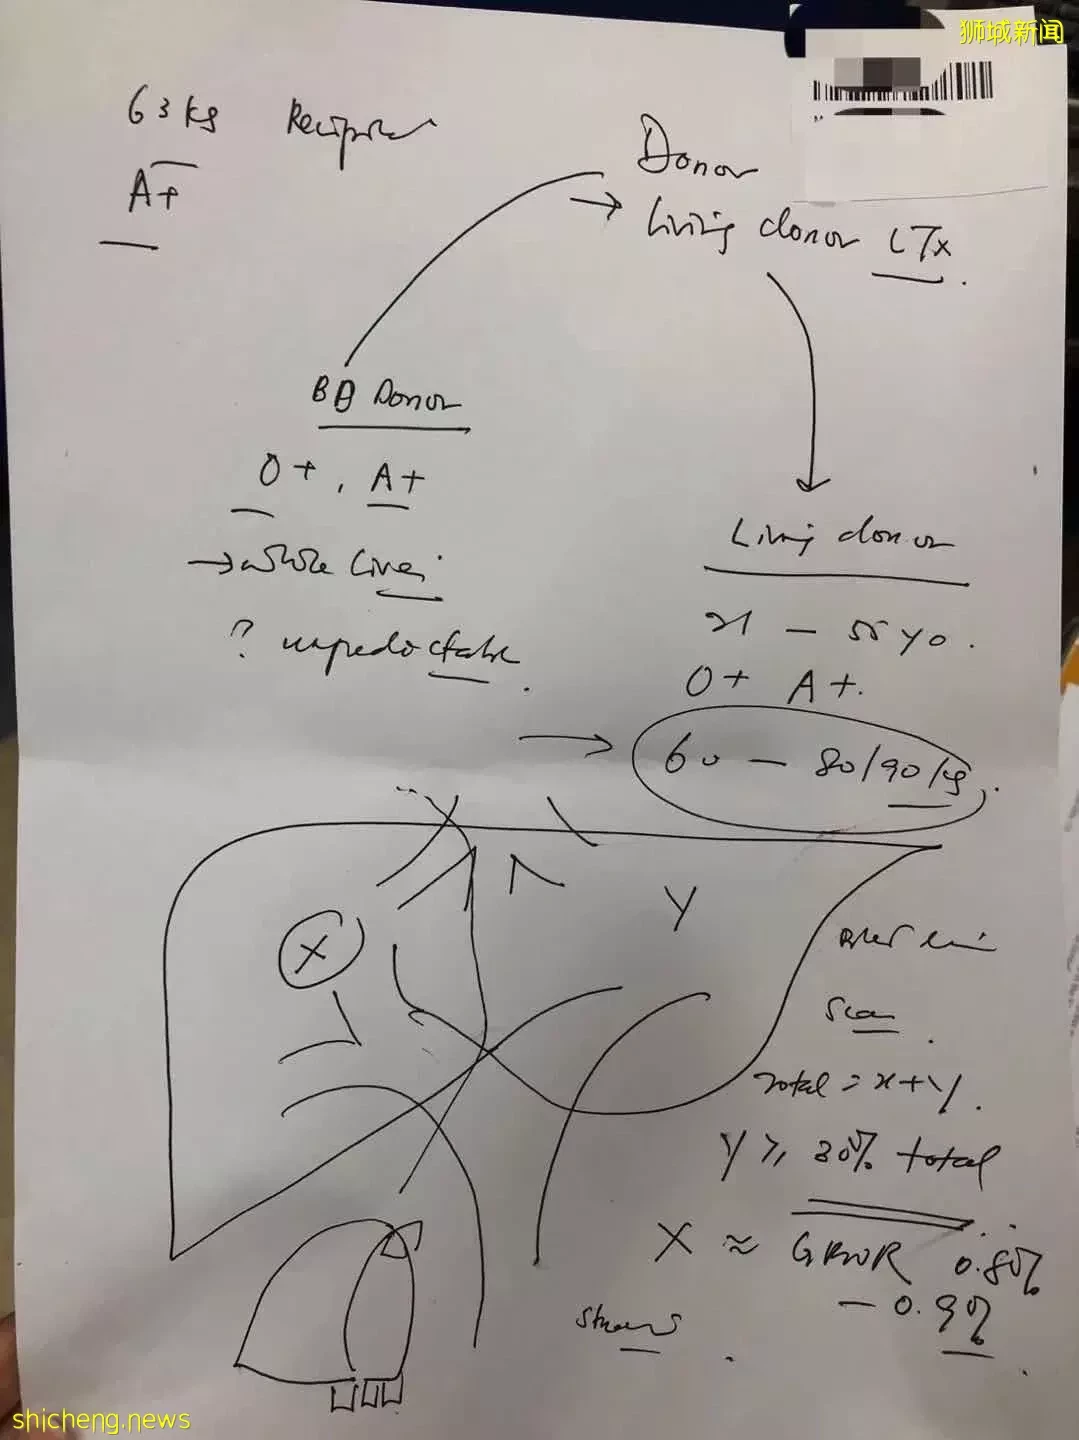 狮城新闻
63 kg Recipient
A+
Donor
→ Living donor LTx.
BD Donor
O+, A+
→ whole liver
? unpredictable.
Living donor
21 – 55 yo.
O+ A+.
→ 60 – 80/90 kg.
X
Y
Scan.
Total = x+y.
Y ≥ 30% total
X ≈ GRWR 0.80%
– 0.9%
shicheng.news